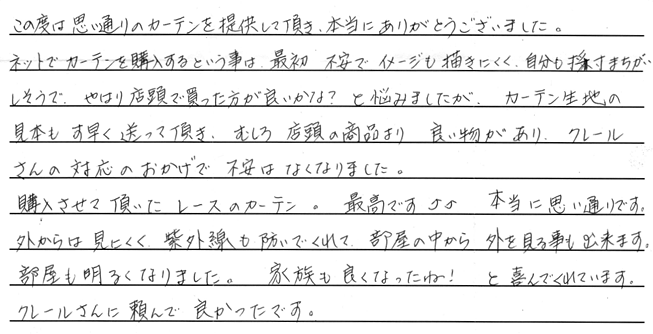 この度は思い通りのカーテンを提供して頂き、本当にありがとうございました。
ネットでカーテンを購入するという事は、最初 不安で イメージも描きにくく、自分も採寸まちがい
しそうで、やはり店頭で買った方が良いかな？と悩みましたが、カーテン生地の
見本もす早く送って頂き、むしろ 店頭の商品より 良い物があり、クレール
さんの対応のおかげで 不安は なくなりました。
購入させて頂いた レースのカーテン。最高です♪♪ 本当に思い通りです。
外からは見にくく、紫外線も防いでくれて、部屋の中から 外を見る事も出来ます。
部屋も明るくなりました。 家族も良くなったね！ と喜んでくれています。
クレールさんに頼んで 良かったです。